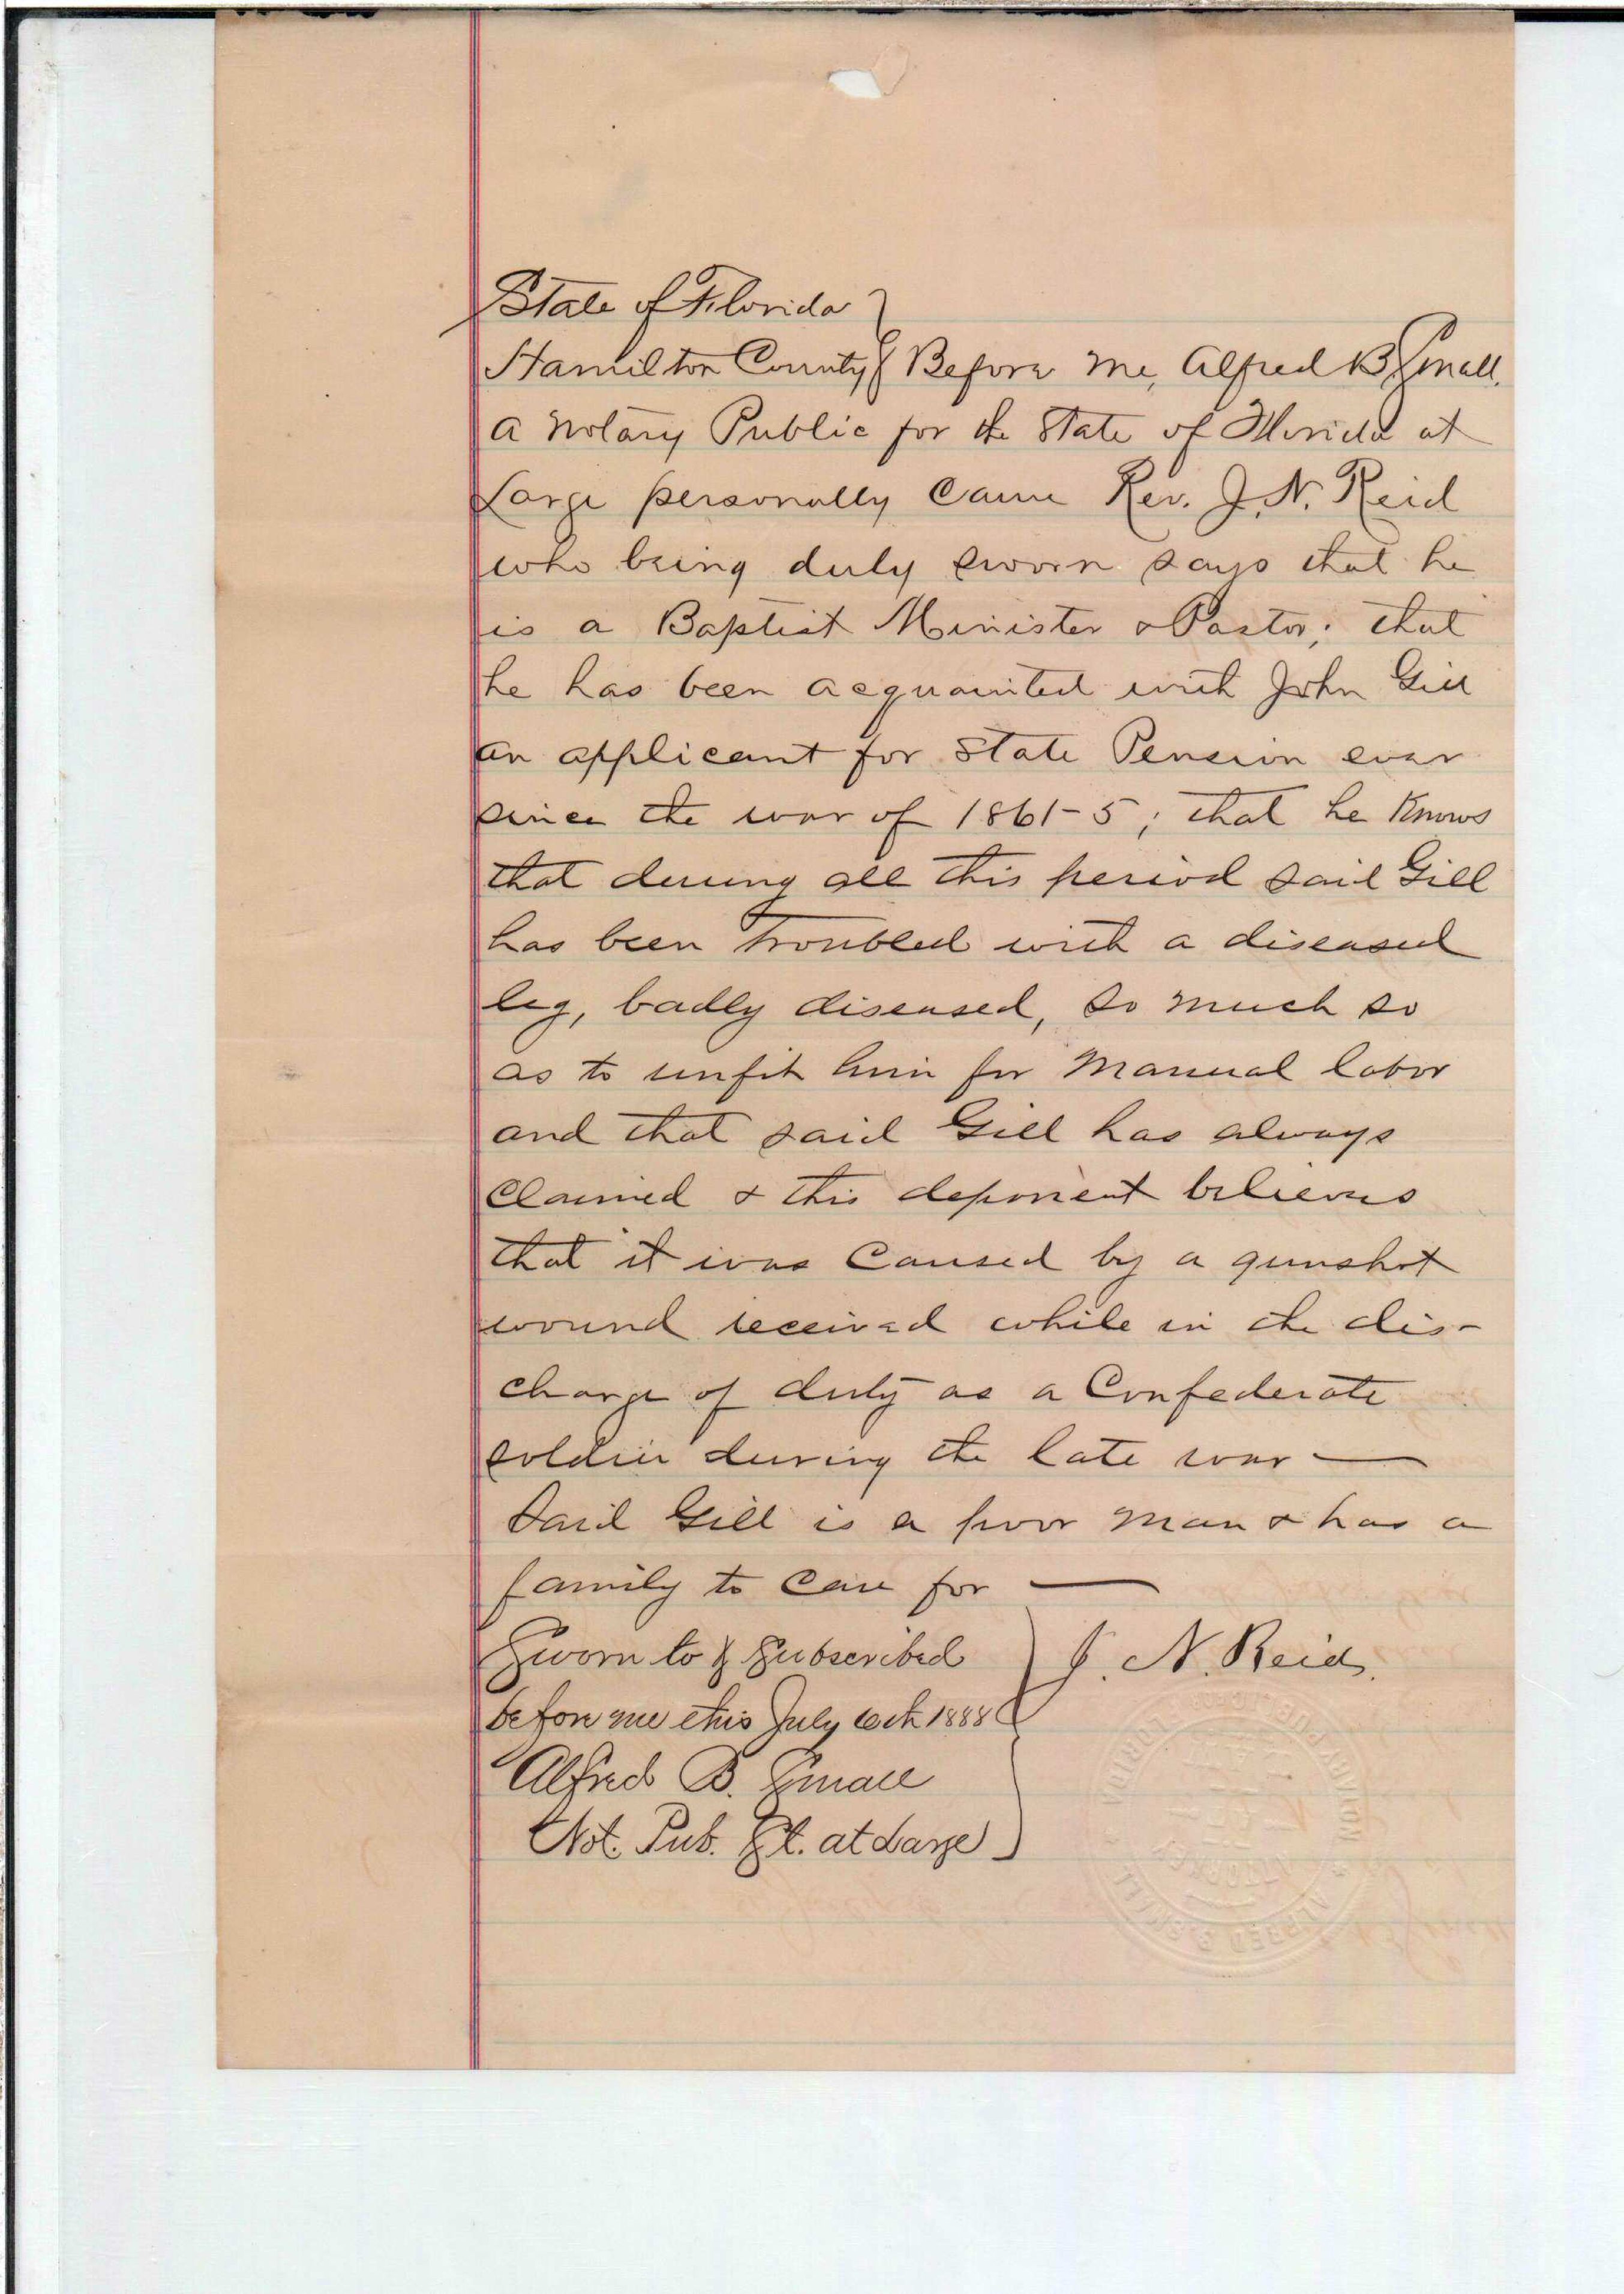 State of Florida }
Hamilton County } Before me, Alfred B. Small,
a Notary Public for the State of Florida at
Large personally came Rev. J. N. Reid
who being duly sworn says that he
is a Baptist Minister & Pastor; that
he has been acquainted with John Gill
an applicant for State Pension ever
since the war of 1861-5; that he knows
that during all this period said Gill
has been troubled with a diseased
leg, badly diseased, so much so
as to unfit him for manual labor
and that said Gill has always
claimed & this deponent believes
that it was caused by a gunshot
wound received while in the dis-
charge of duty as a Confederate
soldier during the late war —
Said Gill is a poor man & has a
family to care for —
Sworn to & Subscribed } J. N. Reid.
before me this July 6th 1888
Alfred B. Small
Not. Pub. St. at Large